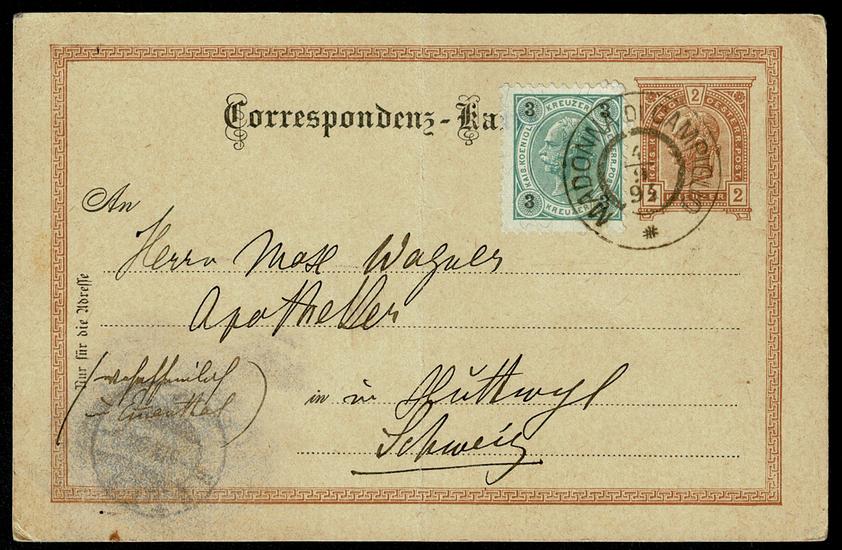 Correspondenz-Ka
3 KREUZER 3
KAIS. KOENIGL.
3 KREUZER
2
KAIS. KOENIGL. OESTERR. POST
2 KREUZER 2
MADONNA DI CAMPIGLIO
An
Herrn Max Wagner
Apotheker
Nur für die Adresse
in in Huttwyl
Schweiz
(wahrscheinlich
Emmenthal)